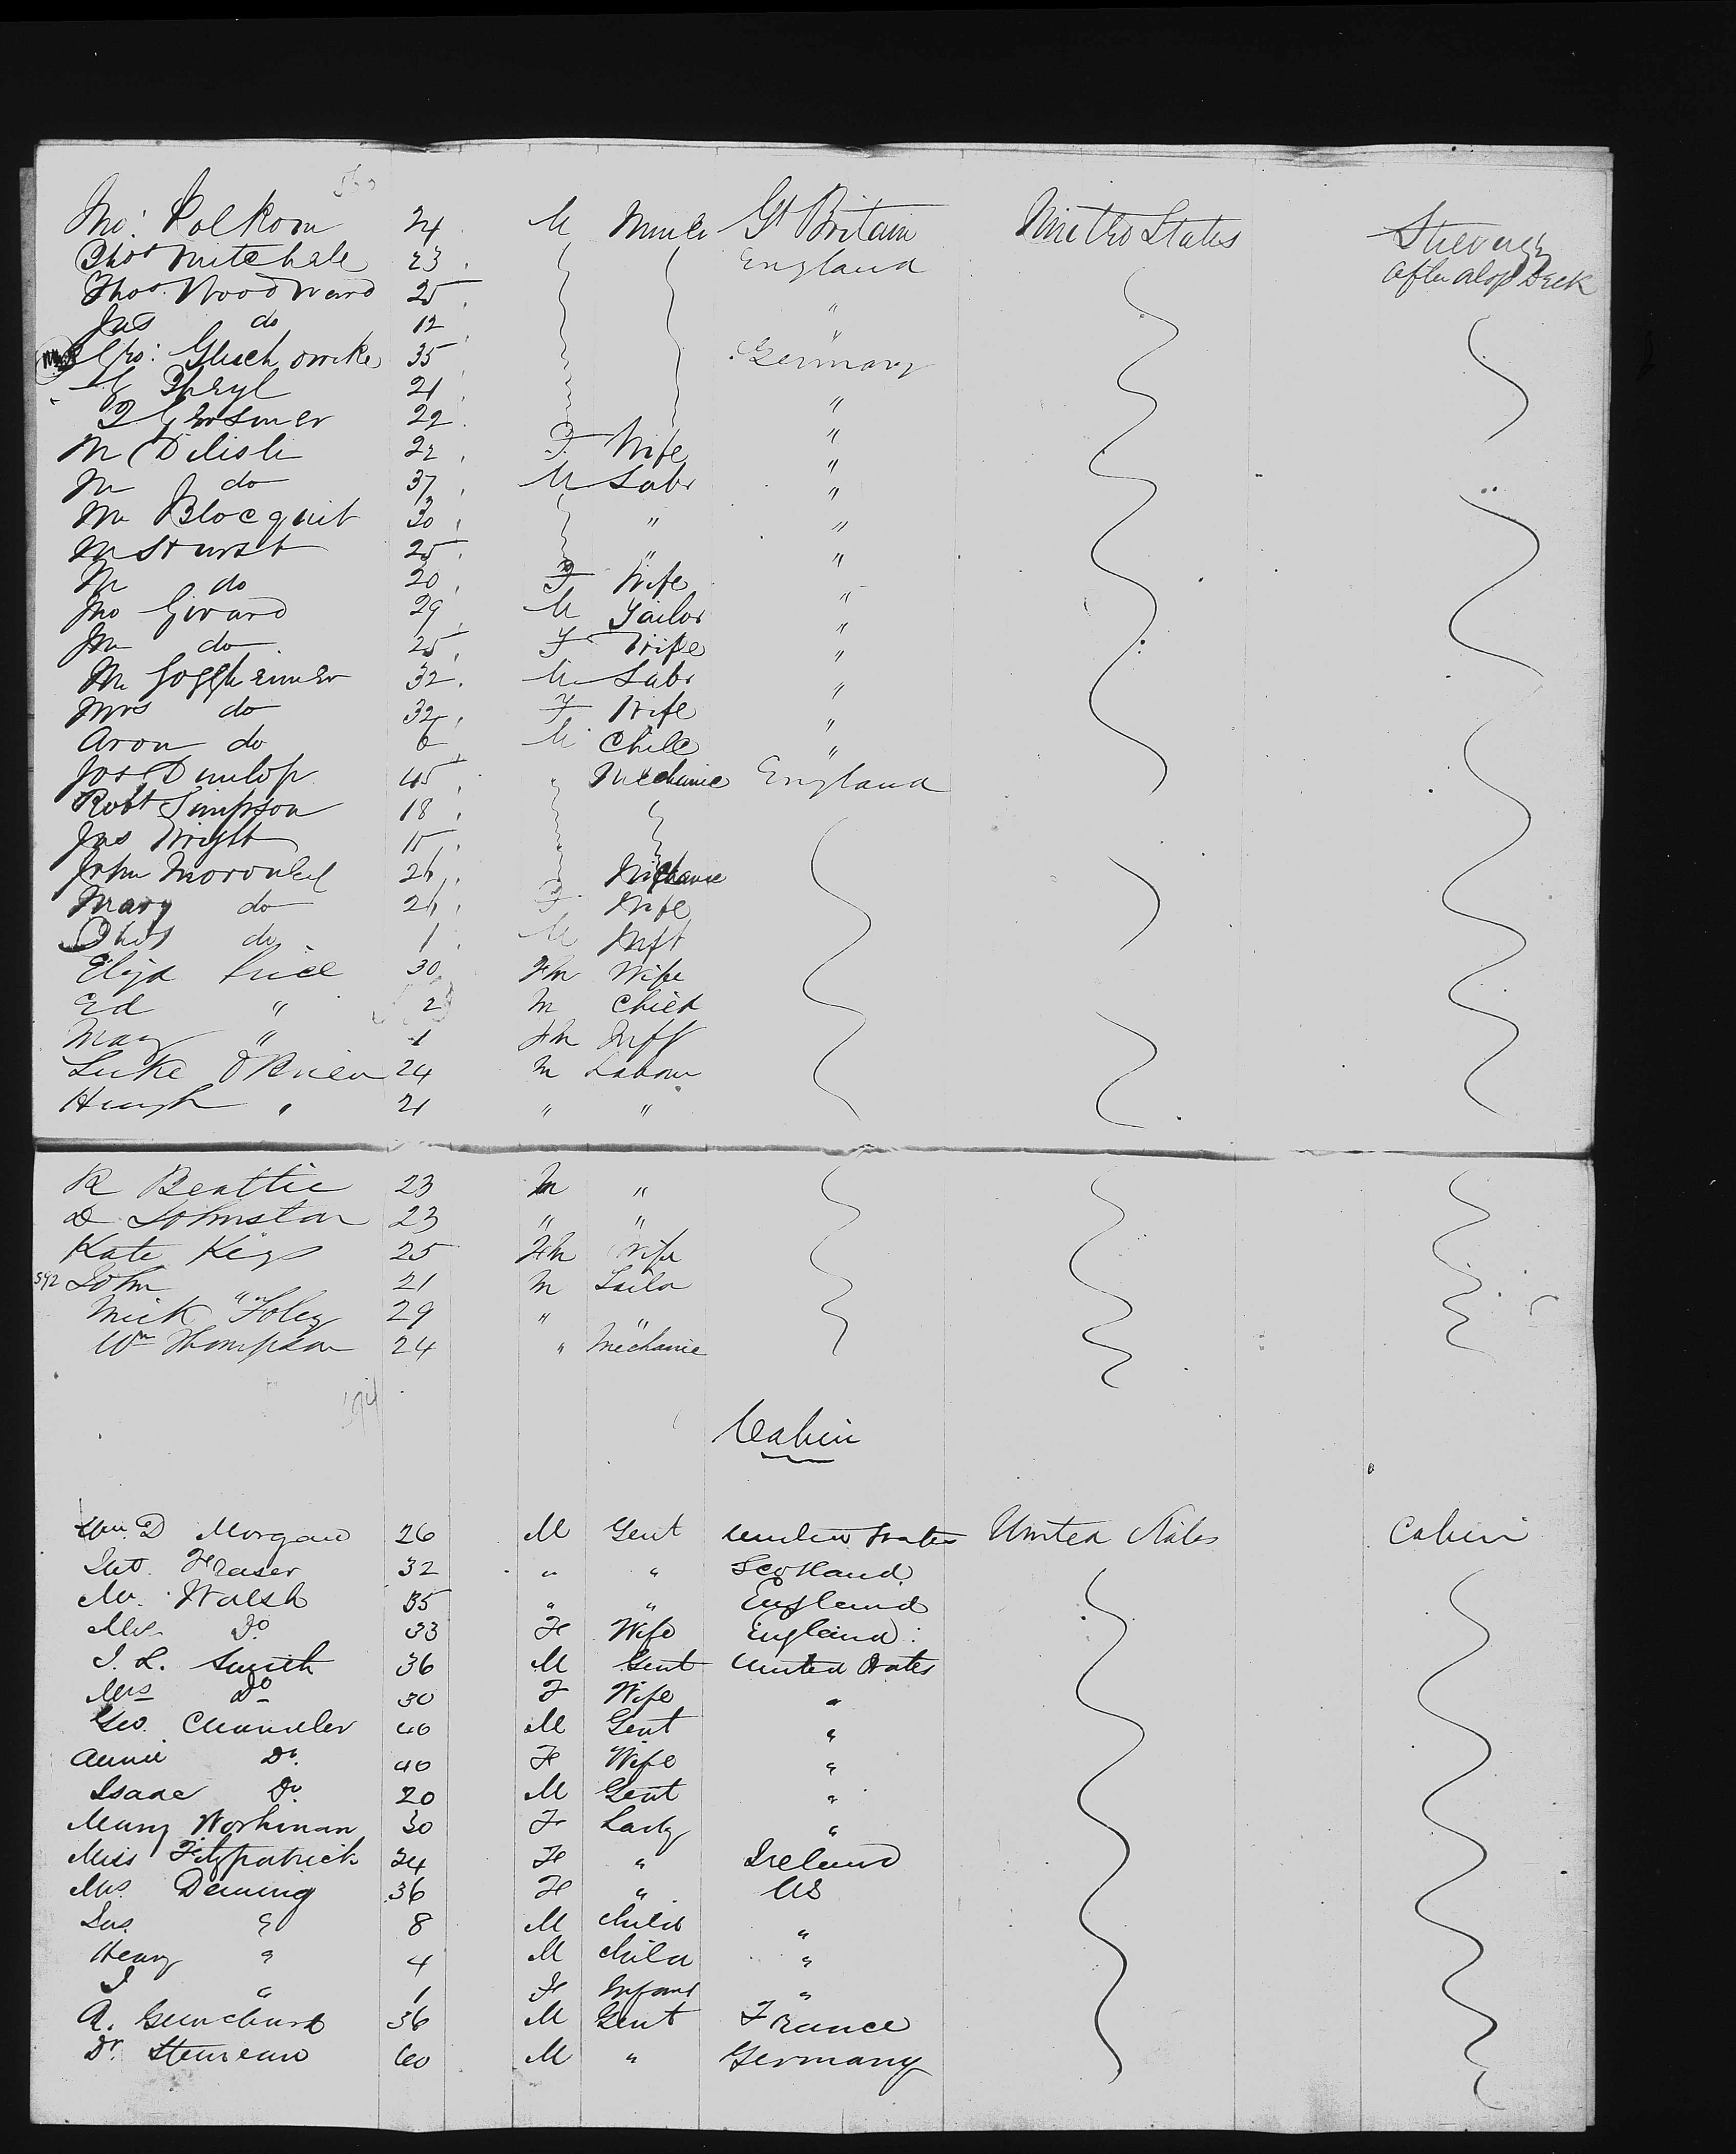 Jno: Polkom 24 M Miner Gt Britain United States Steerage
Thos Mitchale 23 England after alop Deck
Thos Woodward 25 "
Jas do 12 "
Chs: 35 Germany
Theyl 21 "
22 "
M Delisle 22 F Wife "
M do 37 M Labr "
M Blocquit 30 " "
M Hurst 25 " "
M do 20 F Wife "
Jno Givard 29 M Tailor "
M do 25 F Wife "
M 32 M Labr "
Mrs do 32 F Wife "
Aron do 6 M Chile "
Jos Dunlop 45 " Mechanic England
Robt Simpson 18
Jas Wright 15
John 26 Mechanic
Mary do 26 F Wife
Thos do 1 M Inft
Eliza Price 30 Fm Wife
Ed " 2 M Child
Mary " 1 Fm Inft
Luke O'Brien 24 M Labour
Hugh " 21 " "
R Beattie 23 M "
D Johnston 23 " "
Kate Keys 25 Fm Wife
592 John " 21 M Sailor
Mick Foley 29 " "
Wm Thompson 24 " Mechanic
594
Cabin
Wm D Morgan 26 M Gent United States United States Cabin
Fraser 32 " " Scotland
Mr. Walsh 35 " " England
Mrs Do 33 F Wife England
J. L. Smith 36 M Gent United States
Mrs Do 30 F Wife "
Geo. Chandler 40 M Gent "
Annie Do. 40 F Wife "
Isaac Do. 20 M Gent "
Mary Workman 30 F Lady "
Miss Fitzpatrick 34 F " Ireland
Mrs. Deming 36 F " US
Jas. " 8 M Child "
Henry " 4 M Child "
J " 1 F Infant "
A. 36 M Gent France
Dr. 60 M " Germany